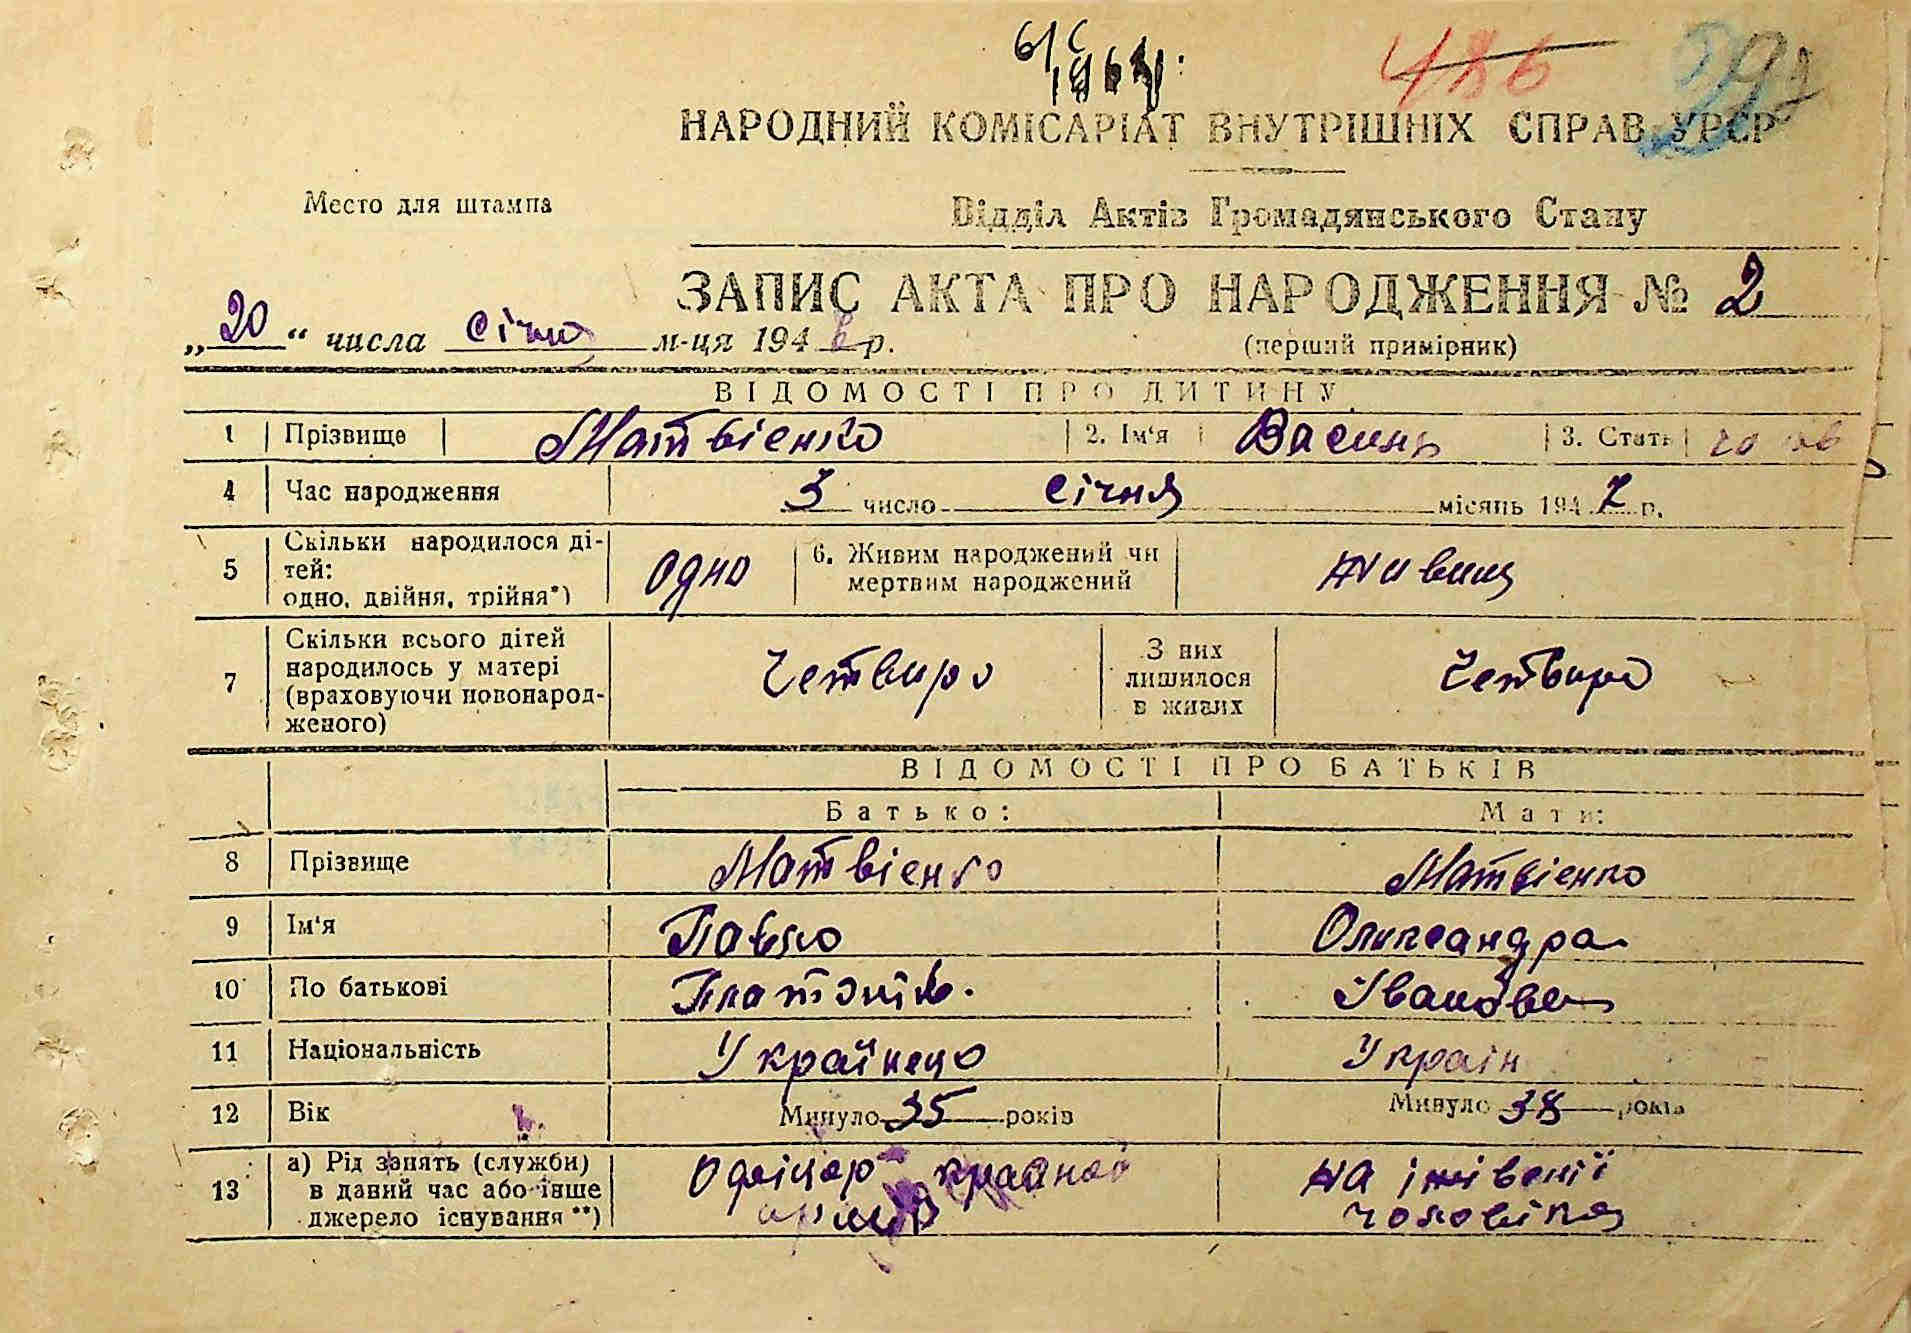 486
НАРОДНИЙ КОМІСАРІАТ ВНУТРІШНІХ СПРАВ УРСР
Место для штампа
Відділ Актів Громадянського Стану
ЗАПИС АКТА ПРО НАРОДЖЕННЯ № 2
„20“ числа січня м-ця 194 р.
(перший примірник)
ВІДОМОСТІ ПРО ДИТИНУ
1 Прізвище Матвієнко 2. Ім‘я Василь 3. Стать чолов
4 Час народження 3 число січня місяць 1947 р.
5 Скільки народилося ді-
тей:
одно, двійня, трійня*) одно 6. Живим народжений чи
мертвим народжений живим
7 Скільки всього дітей
народилось у матері
(враховуючи новонарод-
женого) Четверо З них
лишилося
в живих Четверо
ВІДОМОСТІ ПРО БАТЬКІВ
Батько: Мати:
8 Прізвище Матвієнко Матвієнко
9 Ім‘я Павло Олександра
10 По батькові Платонів. Іванівна
11 Національність Українець Україн
12 Вік Минуло 35 років Минуло 38 років
13 а) Рід занять (служби)
в даний час або інше
джерело існування **) Офіцер красной
армії на іжівенії
чоловіка